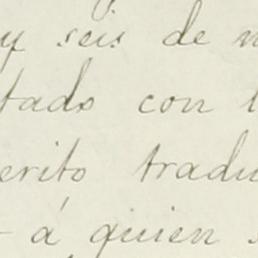 y seis de
tado con
erito tradu
á quien